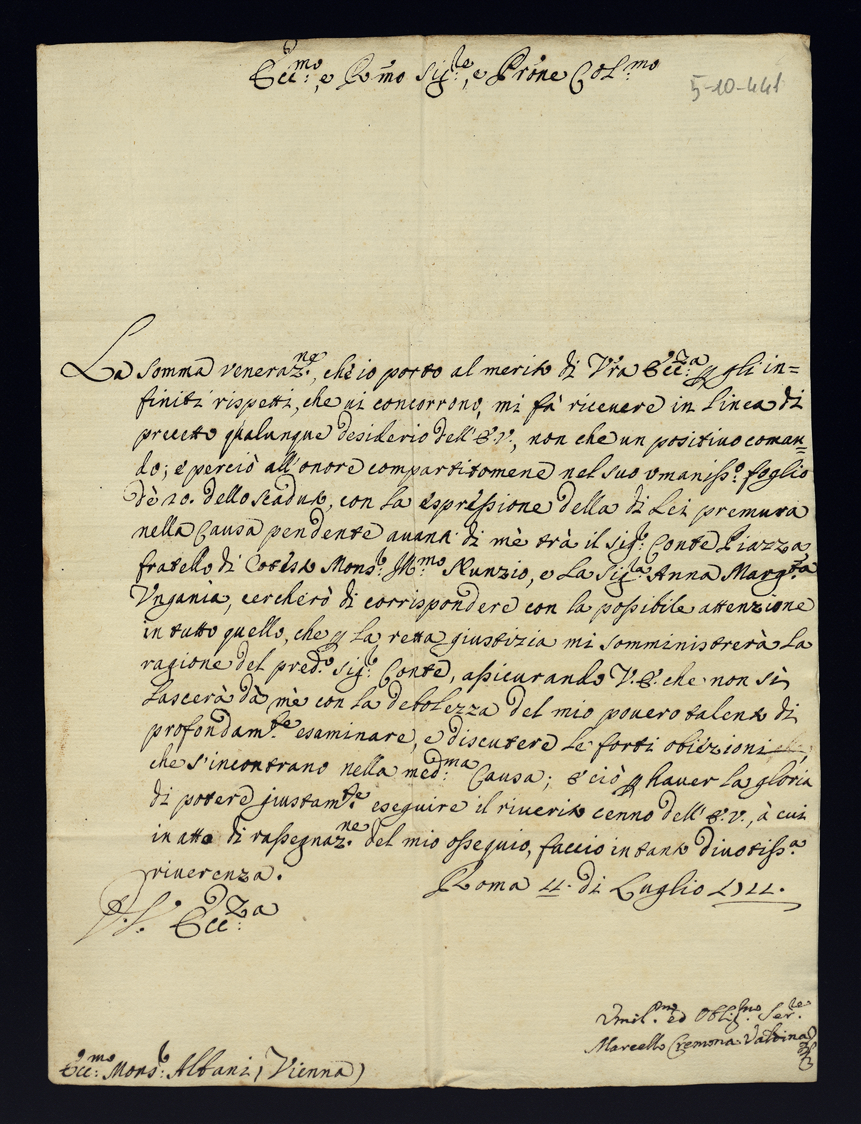 Ecc.mo, e R.mo Sig.le, e Prōne Col.mo
5-10-441
La somma veneraz.ne, che io porto al merito di Vr̄a Ecc.za, p gli in=
finiti rispetti, che ui concorrono, mi fà riceuere in linea di
precetto qualunque desiderio dell'E.V., non che un positiuo coman=
do; e perciò all'onore compartitomene nel suo vmaniss.o foglio
dè 20. dello scaduto, con la espressione della di Lei premura
nella Causa pendente auanti di mè trà il Sig.r Conte Piazza
fratello di Cotesto Mons.r Ill.mo Nunzio, e la Sig.ra Anna Marg.ta
Vngania, cercherò di corrispondere con la possibile attenzione
in tutto quello, che p la retta giustizia mi somministrerà la
ragione del pred.o Sig.r Conte, assicurando V.E. che non si
lascerà dà mè con la debolezza del mio pouero talento di
profondam.te esaminare, e discutere le forti obiezioni
che s'incontrano nella med.ma Causa; E ciò p hauer la gloria
di potere giustam.te eseguire il riuerito cenno dell'E.V., à cui
in atto di rassegnaz.ne del mio ossequio, faccio intanto diuotiss.a
riuerenza.
Roma 11. di Luglio 1711.
V. Ecc.za
Vmil.mo ed Obl.mo Ser.re
Marcello Cremona Valdina
Ecc.mo Mons.r Albani (Vienna)